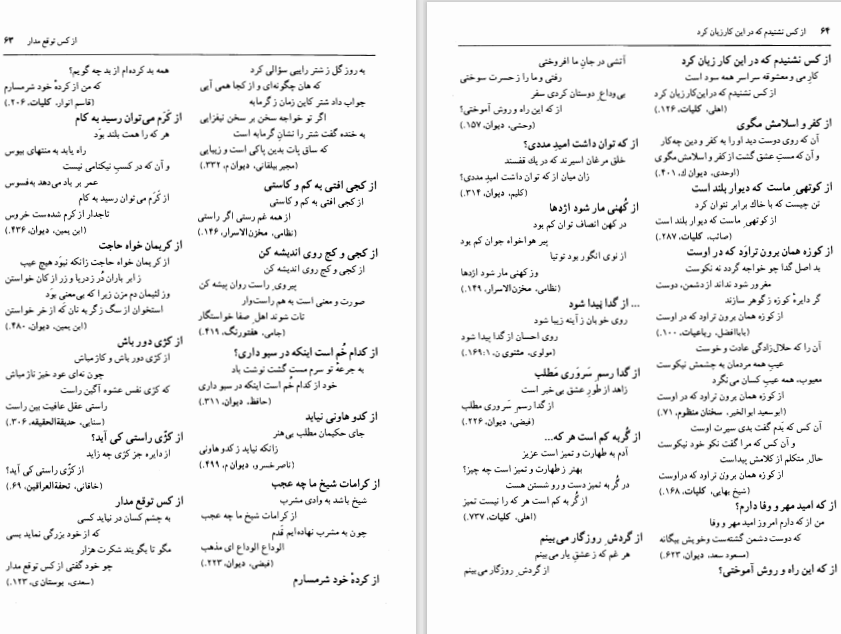 از کس توقع مدار ۶۳
به روز گل ز شتر رایبی سؤالی کرد
که هان چگونه‌ای و از کجا همی آیی
جواب داد شتر کاین زمان ز گرمابه
اگر تو خواجه سخن بر سخن نیفزایی
به خنده گفت شتر را نشانِ گرمابه است
که ساق پات بدین پاکی است و زیبایی
(مجیر بیلقانی، دیوان م، ۳۳۲.)
از کجی افتی به کم و کاستی
از کجی افتی به کم و کاستی
از همه غم رستی اگر راستی
(نظامی، مخزن‌الاسرار، ۱۴۶.)
از کجی و کج روی اندیشه کن
از کجی و کج روی اندیشه کن
پیروی ِ راست روان پیشه کن
صورت و معنی است به هم راست‌وار
تات شوند اهل ِ صفا خواستگار
(جامی، هفتورنگ، ۴۱۹.)
از کدام خُم است اینکه در سبو داری؟
به جرعهٔ تو سرم مستِ گشت نوشت باد
خود از کدام خُم است اینکه در سبو داری
(حافظ، دیوان، ۳۱۱.)
از کدو هاونی نیاید
جای حکیمان مطلب بی‌هنر
زانکه نیاید ز کدو هاونی
(ناصر خسرو، دیوان م، ۴۹۹.)
از کرامات شیخ ما چه عجب
شیخ باشد به وادی مشرب
از کرامات شیخ ما چه عجب
چون به مشرب نهاده‌ایم قدم
الوداع الوداع ای مذهب
(فیضی، دیوان، ۲۲۳.)
از کردهٔ خود شرمسارم
همه بد کرده‌ام از بد چه گویم؟
که من از کردهٔ خود شرمسارم
(قاسم انوار، کلیات، ۲۰۶.)
از کَرَم می‌توان رسید به کام
هر که را همت بلند بوَد
راه یابد به منتهای بیوس
و آن که در کسبِ نیکنامی نیست
عمر بر باد می‌دهد به‌فسوس
از کَرَم می‌توان رسید به کام
تاجدار از کرم شده‌ست خروس
(ابن یمین، دیوان، ۴۳۶.)
از کریمان خواه حاجت
از کریمان خواه حاجت زانکه نبوَد هیچ عیب
ز ابر باران دُر ز دریا و زر از کان خواستن
وز لئیمان دم مزن زیرا که بی‌معنی بوَد
استخوان از سگ ز گربه نان که از خر خواستن
(ابن یمین، دیوان، ۴۸۰.)
از کژی دور باش
از کژی دور باش و کاژ مباش
چون نه‌ای عود خیز تاژ مباش
که کژی نفس عشوه آگین راست
راستی عقل عافیت بین راست
(سنایی، حدیقةالحقیقه، ۳۰۶.)
از کژّی راستی کی آید؟
از دایره جز کژی چه زاید
از کژّی راستی کی آید؟
(خاقانی، تحفةالعراقین، ۶۹.)
از کس توقع مدار
به چشم کسان در نیاید کسی
که از خود بزرگی نماید بسی
مگو تا بگویند شکرت هزار
چو خود گفتی از کس توقع مدار
(سعدی، بوستان ی، ۱۲۳.)
۶۴ از کس نشنیدم که در این کار زیان کرد
از کس نشنیدم که در این کار زیان کرد
کارِ می و معشوقه سراسر همه سود است
از کس نشنیدم که در این کار زیان کرد
(اهلی، کلیات، ۱۲۶.)
از کفر و اسلامش مگوی
آن که روی دوست دید او را به کفر و دین چه‌کار
و آن که مستِ عشق گشت از کفر و اسلامش مگوی
(اوحدی، دیوان ك، ۴۰۱.)
از کوتهی ِ ماست که دیوار بلند است
تن چیست که با خاك برابر نتوان کرد
از کوتهی ِ ماست که دیوار بلند است
(صائب، کلیات، ۲۸۷.)
از کوزه همان برون تراوَد که در اوست
بد اصل گدا چو خواجه گردد نه نکوست
مغرور شود نداند از دشمن، دوست
گر دایرهٔ کوزه ز گوهر سازند
از کوزه همان برون تراود که در اوست
(باباافضل، رباعیات، ۱۰۰.)
آن را که حلال‌زادگی عادت و خوست
عیبِ همه مردمان به چشمش نیکوست
معیوب، همه عیبِ کسان می‌نگرد
از کوزه همان برون تراود که در اوست
(ابوسعید ابوالخیر، سخنان منظوم، ۷۱.)
آن کس که بَدم گفت بدی سیرت اوست
و آن کس که مرا گفت نکو خود نیکوست
حال ِ متکلم از کلامش پیداست
از کوزه همان برون تراود که دراوست
(شیخ بهایی، کلیات، ۱۶۸.)
از که امید مهر و وفا دارم؟
من از که دارم امروز امید مهر و وفا
که دوست دشمن گشته‌ست وخویش بیگانه
(مسعود سعد، دیوان، ۶۲۳.)
از که این راه و روش آموختی؟
آتشی در جانِ ما افروختی
رفتی و ما را ز حسرت سوختی
بی‌وداع ِ دوستان کردی سفر
از که این راه و روش آموختی؟
(وحشی، دیوان، ۱۵۷.)
از که توان داشت امیدِ مددی؟
خلق مرغان اسیرند که در یك قفسند
زان میان از که توان داشت امیدِ مددی؟
(کلیم، دیوان، ۳۱۴.)
از کُهنی مار شود اژدها
در کهن انصاف توان کم بود
پیر هواخواه جوان کم بود
از نوی انگور بود توتیا
وز کهنی مار شود اژدها
(نظامی، مخزن‌الاسرار، ۱۴۹.)
... از گدا پیدا شود
روی خوبان ز آینه زیبا شود
روی احسان از گدا پیدا شود
(مولوی، مثنوی ن، ۱۶۹:۱.)
از گدا رسمِ سَروَری مَطلب
زاهد از طَورِ عشق بی خبر است
از گدا رسم ِ سَروری مطلب
(فیضی، دیوان، ۲۲۶.)
از گُربه کم است هر که...
آدم به طهارت و تمیز است عزیز
بهتر ز طهارت و تمیز است چه چیز؟
در گُربه تمیز دست و رو شستن هست
از گُربه کم است هر که را نیست تمیز
(اهلی، کلیات، ۷۳۷.)
از گردش ِ روزگار می‌بینم
هر غم که ز عشقِ یار می‌بینم
از گردش ِ روزگار می‌بینم